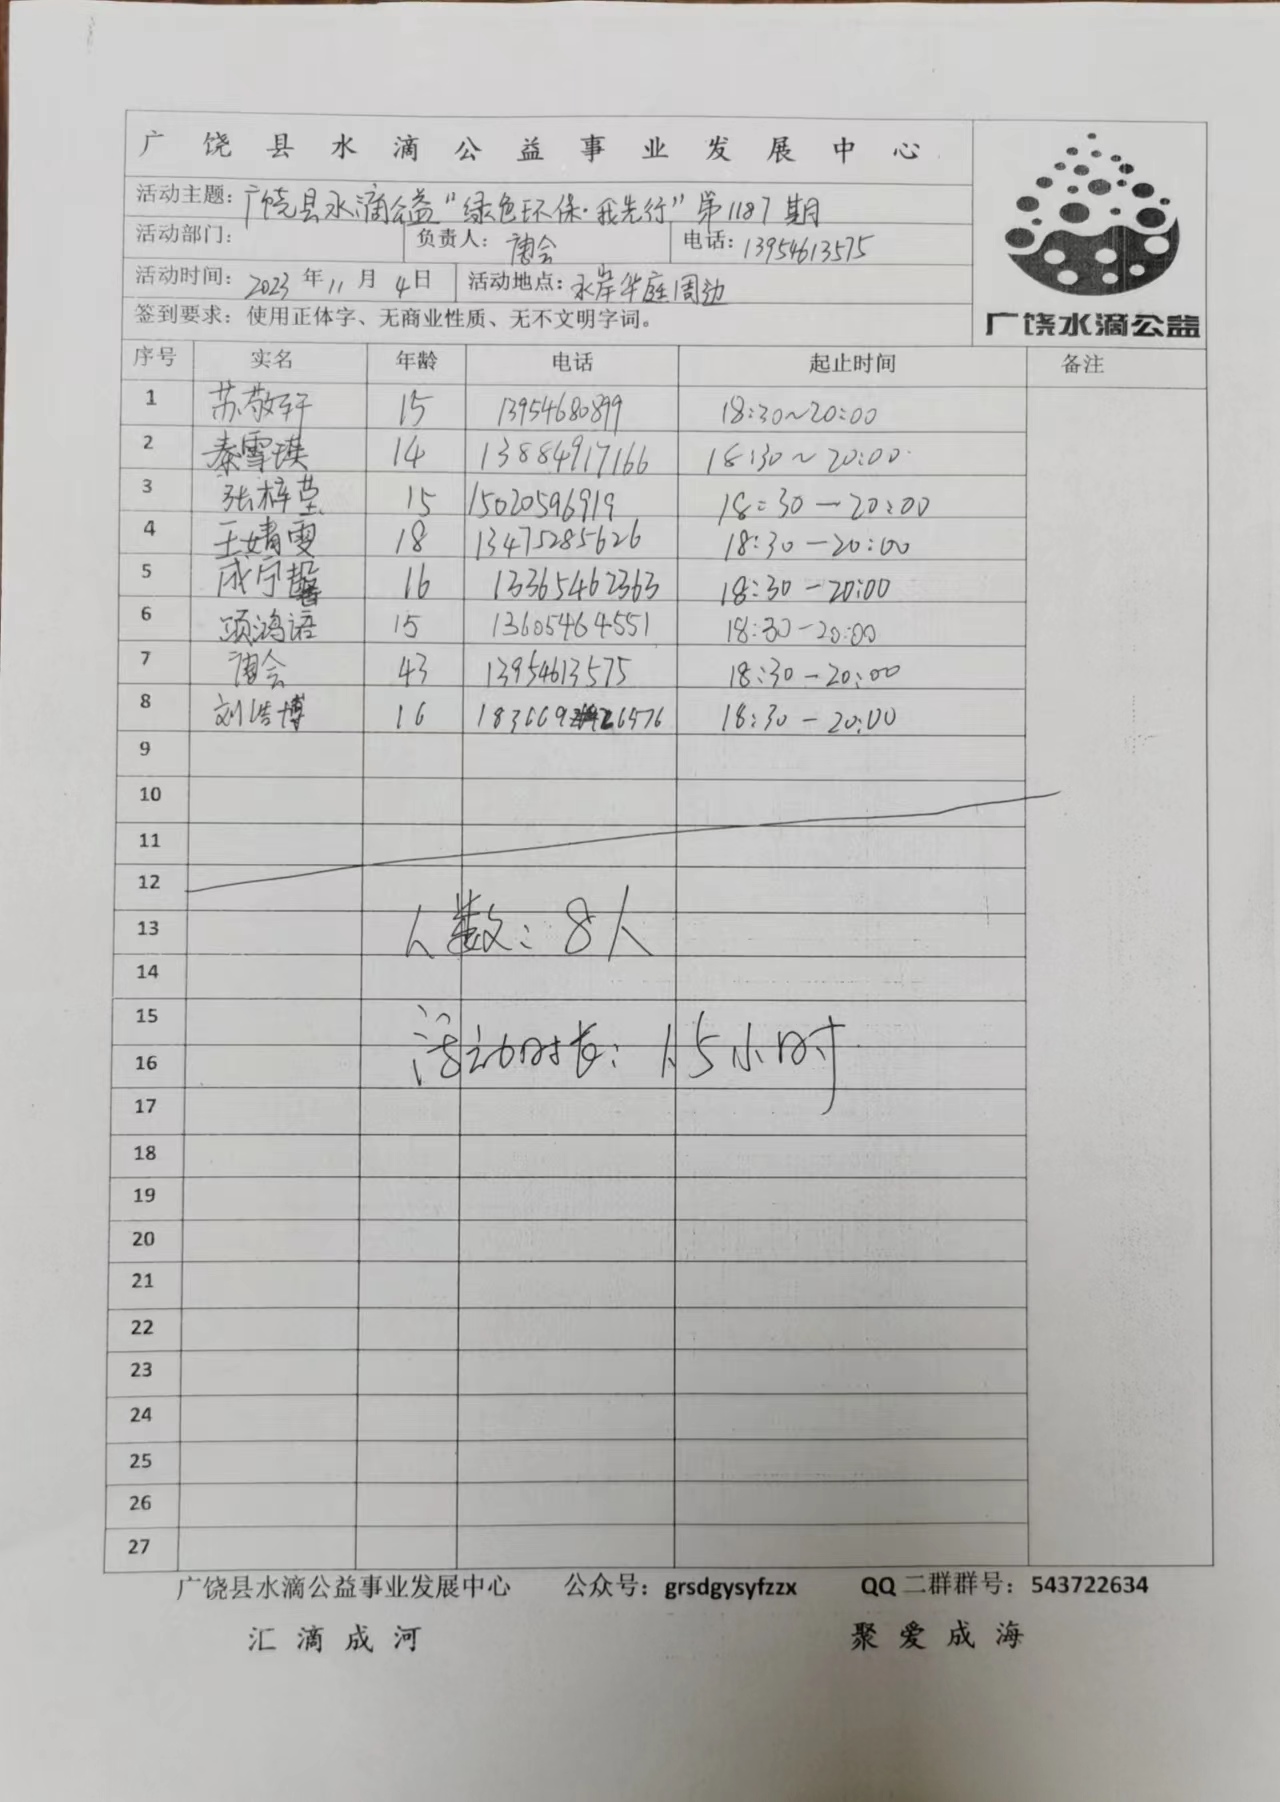 广饶县水滴公益事业发展中心
活动主题：广饶县水滴公益“绿色环保·我先行”第1187期
活动部门： 负责人：唐会 电话：13954613575
活动时间：2023年11月4日 活动地点：水岸华庭周边
签到要求：使用正体字、无商业性质、无不文明字词。
广饶水滴公益
序号 实名 年龄 电话 起止时间 备注
1 苏敬轩 15 13954680899 18:30~20:00
2 秦雪瑛 14 13884917166 18:30~20:00
3 张梓莹 15 15020596919 18:30—20:00
4 王婧雯 18 13475285626 18:30—20:00
5 成宇馨 16 13365462363 18:30—20:00
6 项鸿语 15 13605464551 18:30—20:00
7 唐会 43 13954613575 18:30—20:00
8 刘浩博 16 18366926576 18:30—20:00
9
10
11
12
13
人数：8人
14
15
16
活动时长：1.5小时
17
18
19
20
21
22
23
24
25
26
27
广饶县水滴公益事业发展中心 公众号：grsdgysyfzzx QQ二群群号：543722634
汇滴成河 聚爱成海